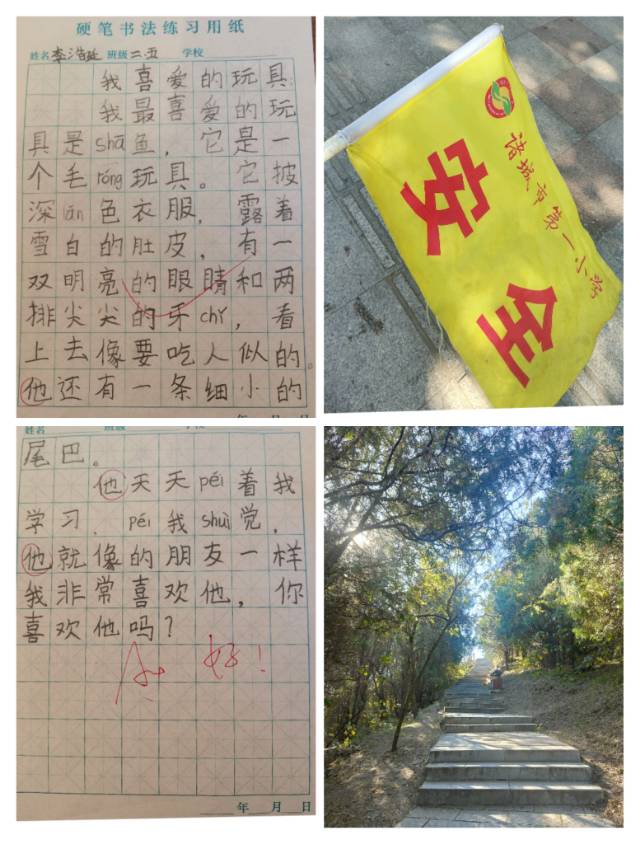 硬笔书法练习用纸
姓名 班级二.五 学校
我喜爱的玩具
我最喜爱的玩
具是shā鱼，它是一
个毛róng玩具。它披
深lán色衣服，露着
雪白的肚皮，有一
双明亮的眼睛和两
排尖尖的牙chǐ，看
上去像要吃人似的。
他还有一条细小的
年 月 日
诸城市第一小学
安全
姓名 班级 学校
尾巴。
他天天péi着我
学习，péi我shuì觉，
他就像的朋友一样
我非常喜欢他，你
喜欢他吗？
好！
年 月 日